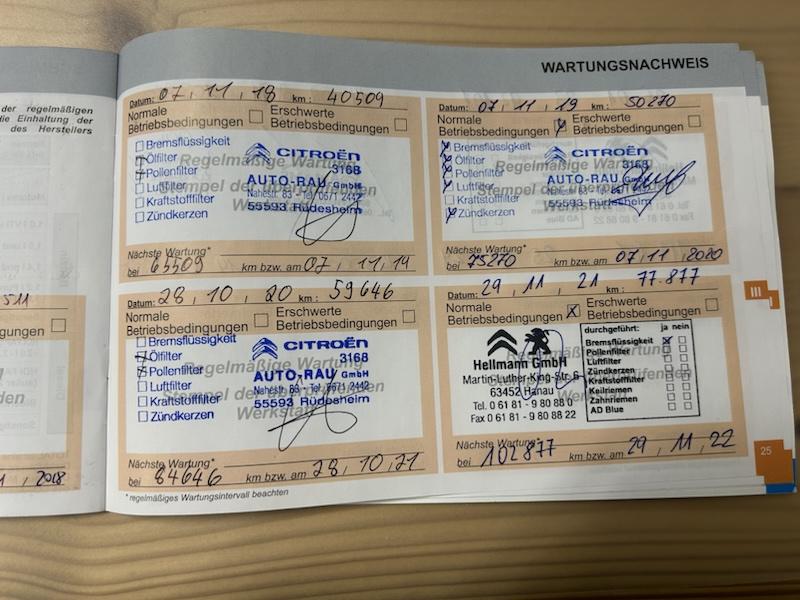 WARTUNGSNACHWEIS
der regelmäßigen
die Einhaltung der
des Herstellers
511
ngungen
den
2018
Datum: 07, 11, 18 km: 40509
Normale Betriebsbedingungen
Erschwerte Betriebsbedingungen
Bremsflüssigkeit
Ölfilter
Pollenfilter
Luftfilter
Kraftstofffilter
Zündkerzen
Regelmäßige Wartung
Stempel der überprüfenden
Werkstatt
CITROËN
3168
AUTO-RAU GmbH
Nahestr. 83 - Tel. 0671 2442
55593 Rüdesheim
Nächste Wartung*
bei 65509 km bzw. am 07, 11, 19
Datum: 07, 11, 19 km: 50270
Normale Betriebsbedingungen
Erschwerte Betriebsbedingungen
Bremsflüssigkeit
Ölfilter
Pollenfilter
Luftfilter
Kraftstofffilter
Zündkerzen
Regelmäßige Wartung
Stempel der überprüfenden
Werkstatt
CITROËN
3168
AUTO-RAU GmbH
Nahestr. 83 - Tel. 0671 2442
55593 Rüdesheim
Nächste Wartung*
bei 75270 km bzw. am 07, 11, 2020
Datum: 28, 10, 20 km: 59646
Normale Betriebsbedingungen
Erschwerte Betriebsbedingungen
Bremsflüssigkeit
Ölfilter
Pollenfilter
Luftfilter
Kraftstofffilter
Zündkerzen
Regelmäßige Wartung
Stempel der überprüfenden
Werkstatt
CITROËN
3168
AUTO-RAU GmbH
Nahestr. 83 - Tel. 0671 2442
55593 Rüdesheim
Nächste Wartung*
bei 84646 km bzw. am 28, 10, 21
Datum: 29, 11, 21 km: 77.877
Normale Betriebsbedingungen
Erschwerte Betriebsbedingungen
Hellmann GmbH
Martin-Luther-King-Str. 6
63452 Hanau
Tel. 0 61 81 - 9 80 88 0
Fax 0 61 81 - 9 80 88 22
durchgeführt: ja nein
Bremsflüssigkeit
Pollenfilter
Luftfilter
Zündkerzen
Kraftstofffilter
Keilriemen
Zahnriemen
AD Blue
Nächste Wartung*
bei 102877 km bzw. am 29, 11, 22
* regelmäßiges Wartungsintervall beachten
III
25